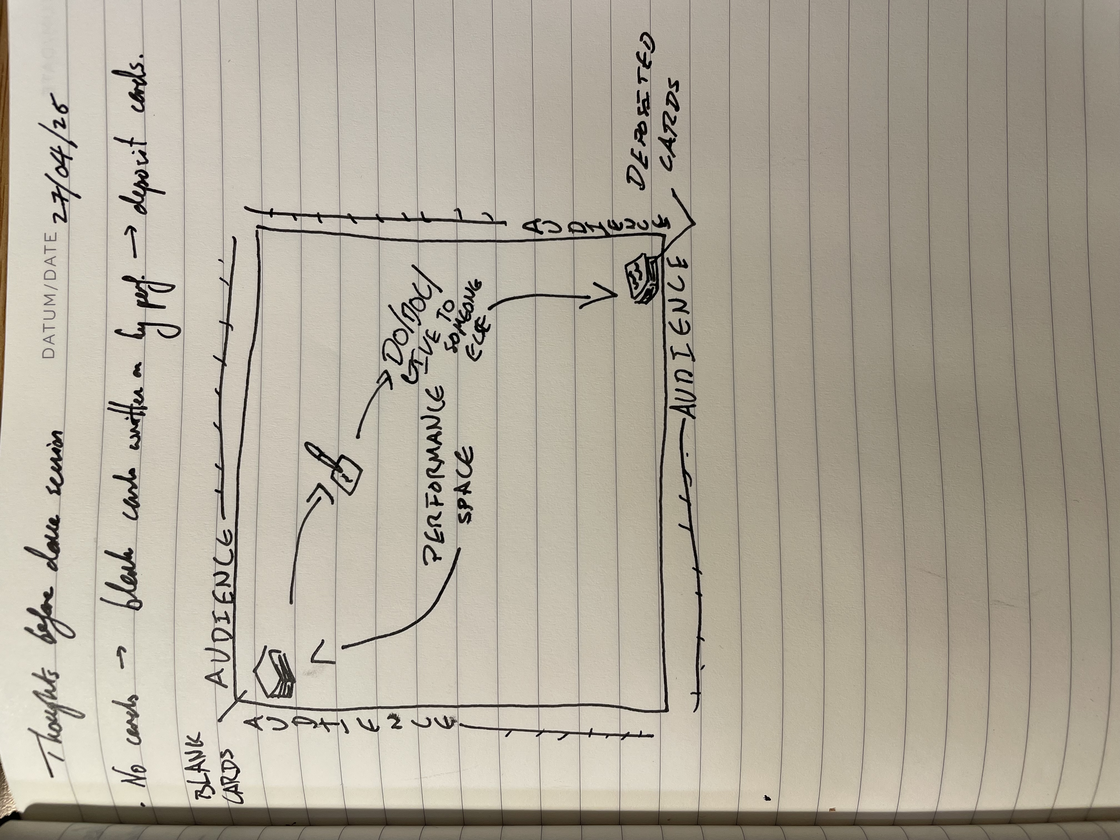 Thoughts before dance session
DATUM/DATE 27/04/26
. No cards → blank cards written on by perf. → deposit cards.
BLANK
CARDS
AUDIENCE
AUDIENCE
AUDIENCE
DO/DOC/
GIVE TO
SOMEONE
ELSE
PERFORMANCE
SPACE
DEPOSITED
CARDS
AUDIENCE